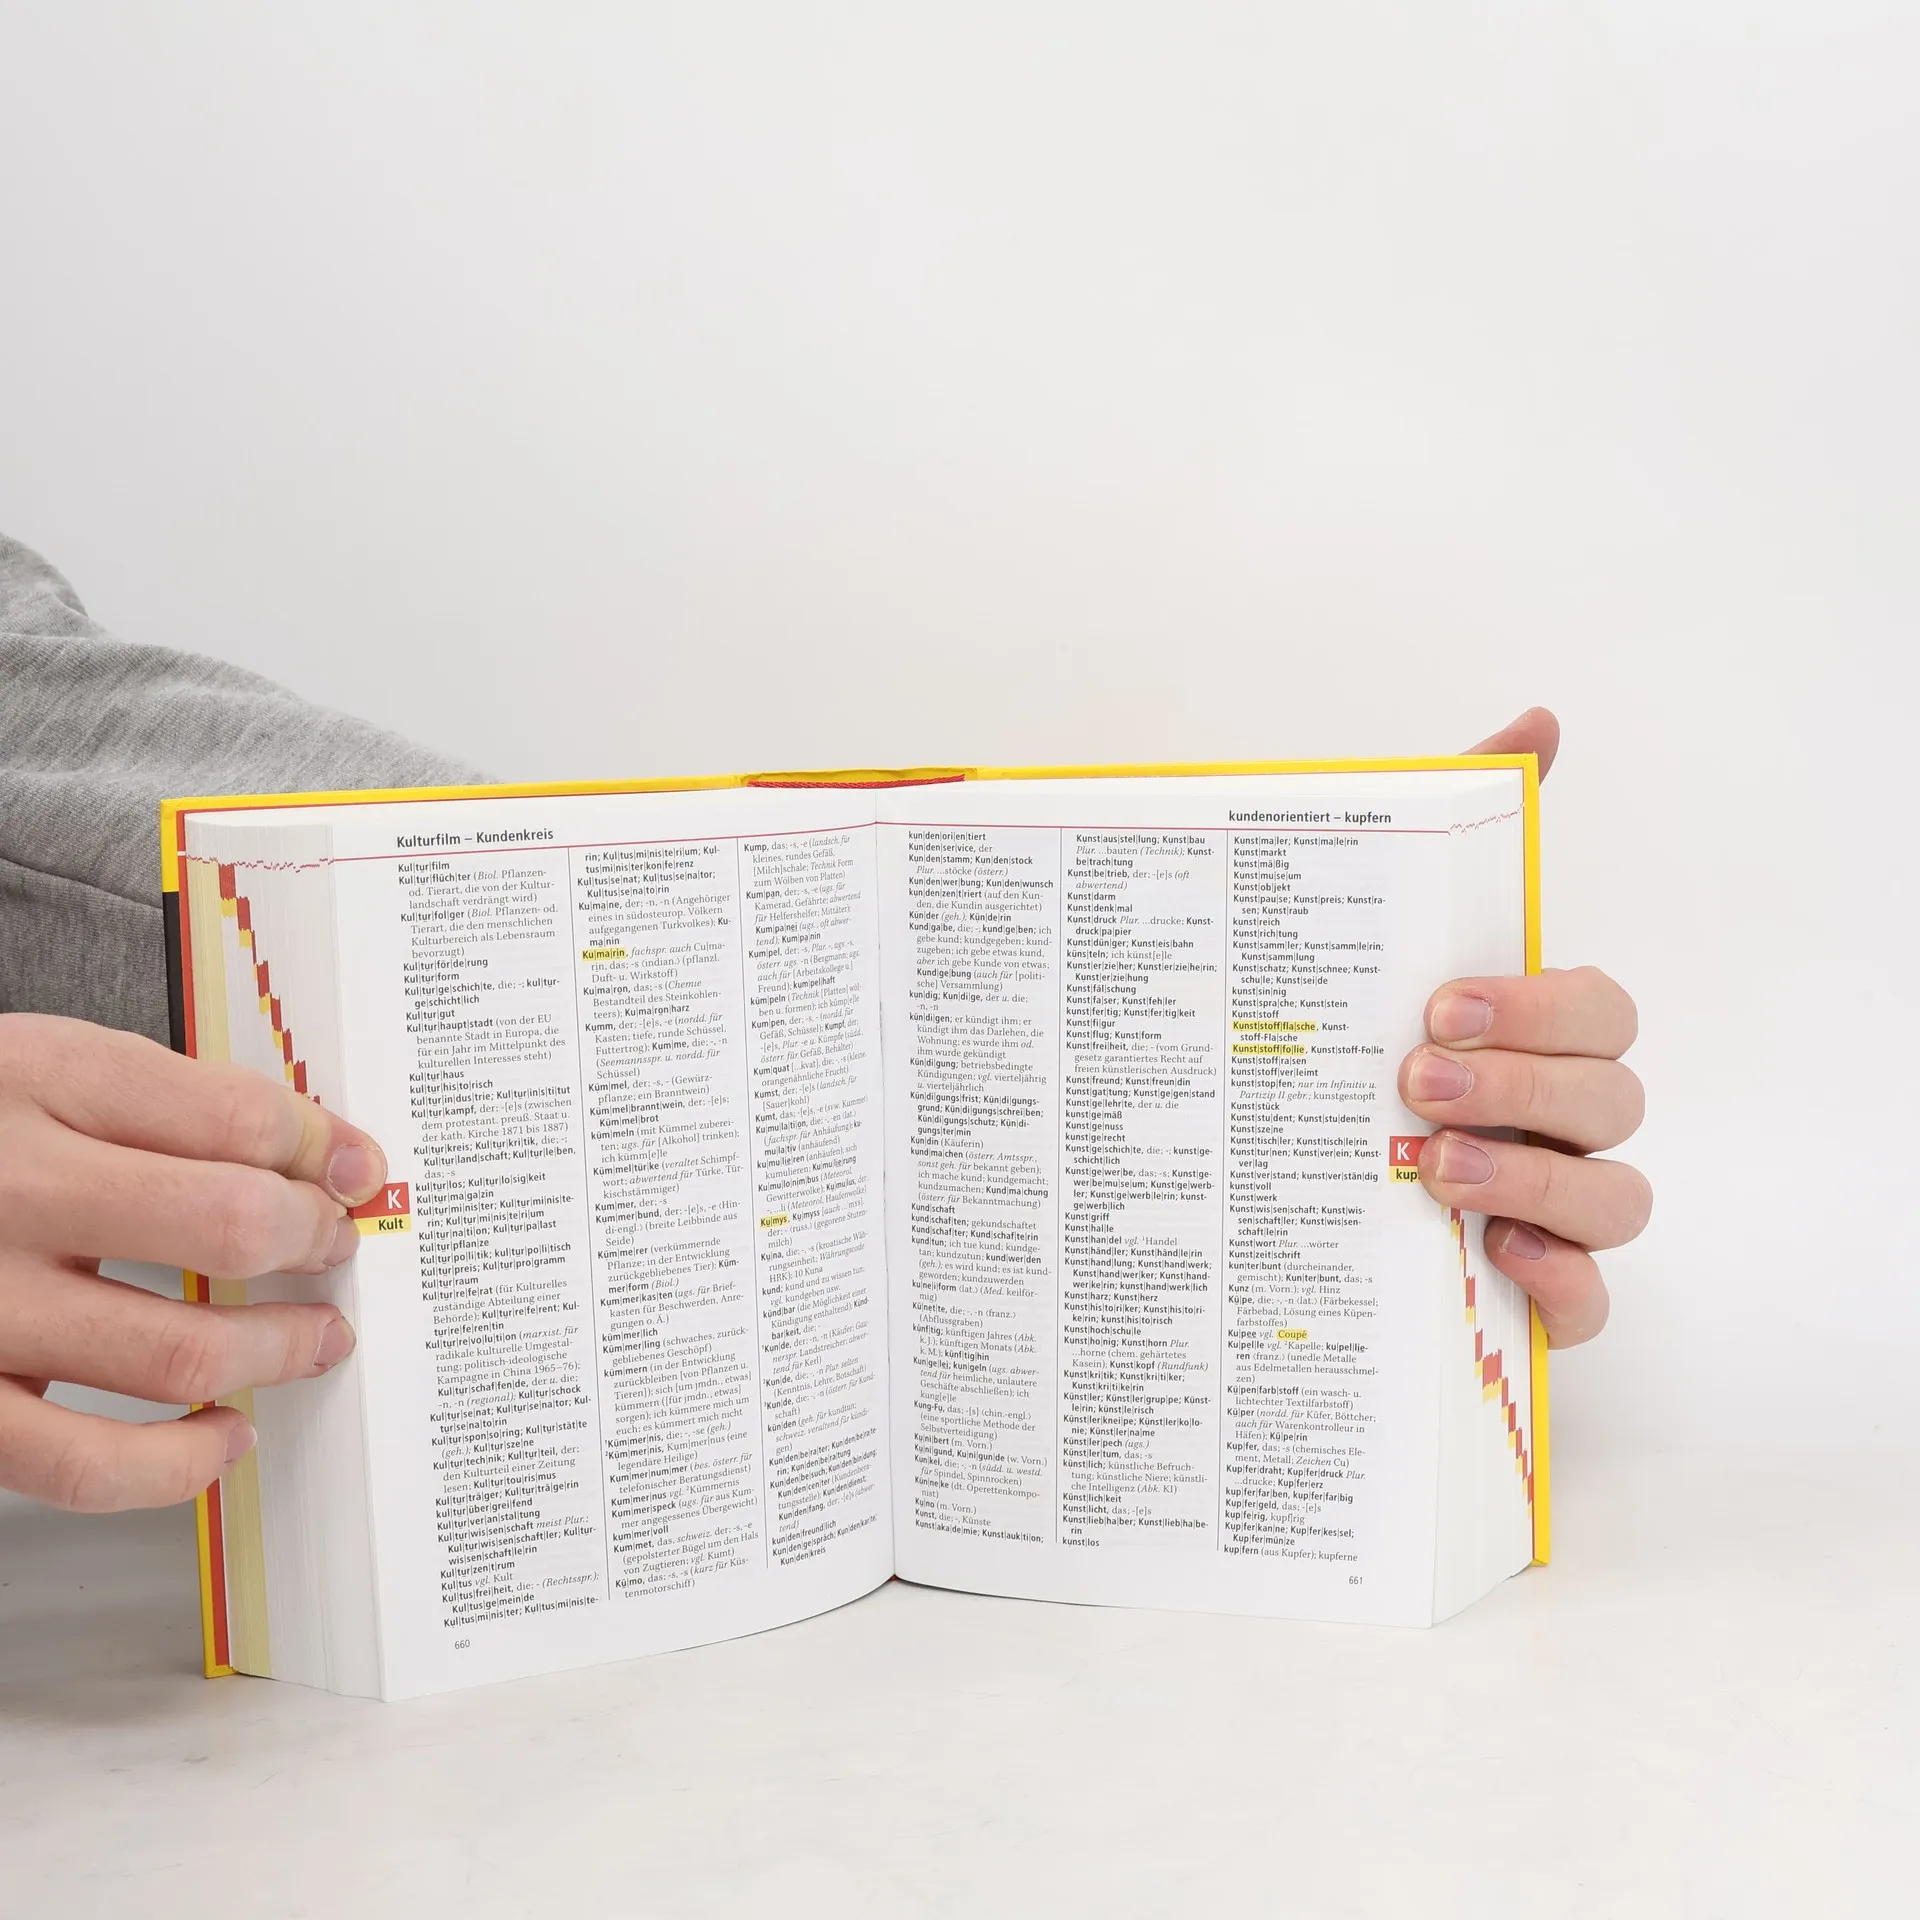 Kulturfilm – Kundenkreis
Kul|tur|film
Kul|tur|flüch|ter (Biol. Pflanzen-
od. Tierart, die von der Kultur-
landschaft verdrängt wird)
Kul|tur|fol|ger (Biol. Pflanzen- od.
Tierart, die den menschlichen
Kulturbereich als Lebensraum
bevorzugt)
Kul|tur|för|de|rung
Kul|tur|form
Kul|tur|ge|schich|te, die; -; kul|tur-
ge|schicht|lich
Kul|tur|gut
Kul|tur|haupt|stadt (von der EU
benannte Stadt in Europa, die
für ein Jahr im Mittelpunkt des
kulturellen Interesses steht)
Kul|tur|haus
kul|tur|his|to|risch
Kul|tur|in|dus|trie; Kul|tur|in|s|ti|tut
Kul|tur|kampf, der; -[e]s (zwischen
dem protestant. preuß. Staat u.
der kath. Kirche 1871 bis 1887)
Kul|tur|kreis; Kul|tur|kri|tik, die; -;
Kul|tur|land|schaft; Kul|tur|le|ben,
das; -s
kul|tur|los; Kul|tur|lo|sig|keit
Kul|tur|ma|ga|zin
Kul|tur|mi|nis|ter; Kul|tur|mi|nis|te-
rin; Kul|tur|mi|nis|te|ri|um
Kul|tur|na|ti|on; Kul|tur|pa|last
Kul|tur|pflan|ze
Kul|tur|po|li|tik; kul|tur|po|li|tisch
Kul|tur|preis; Kul|tur|pro|gramm
Kul|tur|raum
Kul|tur|re|fe|rat (für Kulturelles
zuständige Abteilung einer
Behörde); Kul|tur|re|fe|rent; Kul-
tur|re|fe|ren|tin
Kul|tur|re|vo|lu|ti|on (marxist. für
radikale kulturelle Umgestal-
tung; politisch-ideologische
Kampagne in China 1965–76);
Kul|tur|schaf|fen|de, der u. die;
-n, -n (regional); Kul|tur|schock
Kul|tur|se|nat; Kul|tur|se|na|tor; Kul-
tur|se|na|to|rin
Kul|tur|spon|so|ring; Kul|tur|stät|te
(geh.); Kul|tur|sze|ne
Kul|tur|tech|nik; Kul|tur|teil, der;
den Kulturteil einer Zeitung
lesen; Kul|tur|tou|ris|mus
Kul|tur|trä|ger; Kul|tur|trä|ge|rin
kul|tur|über|grei|fend
Kul|tur|ver|an|stal|tung
Kul|tur|wis|sen|schaft meist Plur.;
Kul|tur|wis|sen|schaft|ler; Kul|tur-
wis|sen|schaft|le|rin
Kul|tur|zen|t|rum
Kul|tus vgl. Kult
Kul|tus|frei|heit, die; - (Rechtsspr.);
Kul|tus|ge|mein|de
Kul|tus|mi|nis|ter; Kul|tus|mi|nis|te-
660
K
Kult
rin; Kul|tus|mi|nis|te|ri|um; Kul-
tus|mi|nis|ter|kon|fe|renz
Kul|tus|se|nat; Kul|tus|se|na|tor;
Kul|tus|se|na|to|rin
Ku|ma|ne, der; -n, -n (Angehöriger
eines in südosteurop. Völkern
aufgegangenen Turkvolkes); Ku-
ma|nin
Ku|ma|rin, fachspr. auch Cu|ma-
rin, das; -s ⟨indian.⟩ (pflanzl.
Duft- u. Wirkstoff)
Ku|ma|ron, das; -s (Chemie
Bestandteil des Steinkohlen-
teers); Ku|ma|ron|harz
Kumm, der; -[e]s, -e (nordd. für
Kasten; tiefe, runde Schüssel,
Futtertrog); Kum|me, die; -, -n
(Seemannsspr. u. nordd. für
Schüssel)
Küm|mel, der; -s, - (Gewürz-
pflanze; ein Branntwein)
Küm|mel|brannt|wein, der; -[e]s;
Küm|mel|brot
küm|meln (mit Kümmel zuberei-
ten; ugs. für [Alkohol] trinken);
ich kümm[e]le
Küm|mel|tür|ke (veraltet Schimpf-
wort; abwertend für Türke, Tür-
kischstämmiger)
Kum|mer, der; -s
Kum|mer|bund, der; -[e]s, -e ⟨Hin-
di-engl.⟩ (breite Leibbinde aus
Seide)
Küm|me|rer (verkümmerte
Pflanze; in der Entwicklung
zurückgebliebenes Tier); Küm-
mer|form (Biol.)
Kum|mer|kas|ten (ugs. für Brief-
kasten für Beschwerden, Anre-
gungen o. Ä.)
küm|mer|lich
Küm|mer|ling (schwaches, zurück-
gebliebenes Geschöpf)
küm|mern (in der Entwicklung
zurückbleiben [von Pflanzen u.
Tieren]); sich [um jmdn., etwas]
kümmern ([für jmdn., etwas]
sorgen); ich kümmere mich um
euch; es kümmert mich nicht
¹Küm|mer|nis, die; -, -se (geh.)
²Küm|mer|nis, Kum|mer|nus (eine
legendäre Heilige)
Kum|mer|num|mer (bes. österr. für
telefonischer Beratungsdienst)
Kum|mer|nus vgl. ²Kümmernis
Kum|mer|speck (ugs. für aus Kum-
mer angegessenes Übergewicht)
kum|mer|voll
Kum|met, das, schweiz. der; -s, -e
(gepolsterter Bügel um den Hals
von Zugtieren; vgl. Kumt)
Kü|mo, das; -s, -s (kurz für Küs-
tenmotorschiff)
Kump, das; -s, -e (landsch. für
kleines, rundes Gefäß,
[Milch]schale; Technik Form
zum Wölben von Platten)
Kum|pan, der; -s, -e (ugs. für
Kamerad, Gefährte; abwertend
für Helfershelfer, Mittäter);
Kum|pa|nei (ugs., oft abwer-
tend); Kum|pa|nin
Kum|pel, der; -s, Plur. -, ugs. -s,
österr. ugs. -n (Bergmann; ugs.
auch für [Arbeits]kollege u.]
Freund); kum|pel|haft
küm|peln (Technik [Platten] wöl-
ben u. formen); ich kümp[e]le
Kum|pen, der; -s, - (nordd. für
Gefäß, Schüssel); Kumpf, der;
-[e]s, Plur. -e u. Kümpfe (südd.,
österr. für Gefäß, Behälter)
Kum|quat [...kvat], die; -, -s (kleine
orangenähnliche Frucht)
Kumst, der; -[e]s (landsch. für
[Sauer]kohl)
Kumt, das; -[e]s, -e (svw. Kummet)
Ku|mu|la|ti|on, die; -, -en ⟨lat.⟩
(fachspr. für Anhäufung); ku-
mu|la|tiv (anhäufend)
ku|mu|lie|ren (anhäufen); sich
kumulieren; Ku|mu|lie|rung
Ku|mu|lo|nim|bus (Meteorol.
Gewitterwolke); Ku|mu|lus, der;
-, ...li (Meteorol. Haufenwolke)
Ku|mys, Ku|myss [auch ...mʏs],
der; - ⟨russ.⟩ (gegorene Stuten-
milch)
Ku|na, die; -, -s (kroatische Wäh-
rungseinheit; Währungscode
HRK); 10 Kuna
kund; kund und zu wissen tun;
vgl. kundgeben usw.
künd|bar (die Möglichkeit einer
Kündigung enthaltend); Künd-
bar|keit, die; -
¹Kun|de, der; -n, -n (Käufer; Gau-
nerspr. Landstreicher; abwer-
tend für Kerl)
²Kun|de, die; -, -n Plur. selten
(Kenntnis, Lehre, Botschaft)
³Kun|de, die; -, -n (österr. für Kund-
schaft)
kün|den (geh. für kundtun;
schweiz. veraltend für kündi-
gen)
Kun|den|be|ra|ter; Kun|den|be|ra|te-
rin; Kun|den|be|ra|tung
Kun|den|be|such; Kun|den|bin|dung;
Kun|den|cen|ter (Kundenbera-
tungsstelle); Kun|den|dienst;
Kun|den|fang, der; -[e]s (abwer-
tend)
kun|den|freund|lich
Kun|den|ge|spräch; Kun|den|kar|te;
Kun|den|kreis
kundenorientiert – kupfern
kun|den|ori|en|tiert
Kun|den|ser|vice, der
Kun|den|stamm; Kun|den|stock
Plur. ...stöcke (österr.)
Kun|den|wer|bung; Kun|den|wunsch
kun|den|zen|t|riert (auf den Kun-
den, die Kundin ausgerichtet)
Kün|der (geh.); Kün|de|rin
Kund|ga|be, die; -; kund|ge|ben; ich
gebe kund; kundgegeben; kund-
zugeben; ich gebe etwas kund,
aber ich gebe Kunde von etwas;
Kund|ge|bung (auch für [politi-
sche] Versammlung)
kun|dig; Kun|di|ge, der u. die;
-n, -n
kün|di|gen; er kündigt ihm; er
kündigt ihm das Darlehen, die
Wohnung; es wurde ihm od.
ihm wurde gekündigt
Kün|di|gung; betriebsbedingte
Kündigungen; vgl. vierteljährig
u. vierteljährlich
Kün|di|gungs|frist; Kün|di|gungs-
grund; Kün|di|gungs|schrei|ben;
Kün|di|gungs|schutz; Kün|di-
gungs|ter|min
Kun|din (Käuferin)
kund|ma|chen (österr. Amtsspr.,
sonst geh. für bekannt geben);
ich mache kund; kundgemacht;
kundzumachen; Kund|ma|chung
(österr. für Bekanntmachung)
Kund|schaft
kund|schaf|ten; gekundschaftet
Kund|schaf|ter; Kund|schaf|te|rin
kund|tun; ich tue kund; kundge-
tan; kundzutun; kund|wer|den
(geh.); es wird kund; es ist kund-
geworden; kundzuwerden
ku|nei|form ⟨lat.⟩ (Med. keilför-
mig)
Kü|net|te, die; -, -n ⟨franz.⟩
(Abflussgraben)
künf|tig; künftigen Jahres (Abk.
k. J.); künftigen Monats (Abk.
k. M.); künf|tig|hin
Kun|ge|lei; kun|geln (ugs. abwer-
tend für heimliche, unlautere
Geschäfte abschließen); ich
kung[e]le
Kung-Fu, das; -[s] ⟨chin.-engl.⟩
(eine sportliche Methode der
Selbstverteidigung)
Ku|ni|bert (m. Vorn.)
Ku|ni|gund, Ku|ni|gun|de (w. Vorn.)
Kun|kel, die; -, -n (südd. u. westd.
für Spindel, Spinnrocken)
Kün|ne|ke (dt. Operettenkompo-
nist)
Ku|no (m. Vorn.)
Kunst, die; -, Künste
Kunst|aka|de|mie; Kunst|auk|ti|on;
Kunst|aus|stel|lung; Kunst|bau
Plur. ...bauten (Technik); Kunst-
be|trach|tung
Kunst|be|trieb, der; -[e]s (oft
abwertend)
Kunst|darm
Kunst|denk|mal
Kunst|druck Plur. ...drucke; Kunst-
druck|pa|pier
Kunst|dün|ger; Kunst|eis|bahn
küns|teln; ich künst[e]le
Kunst|er|zie|her; Kunst|er|zie|he|rin;
Kunst|er|zie|hung
Kunst|fäl|schung
Kunst|fa|ser; Kunst|feh|ler
kunst|fer|tig; Kunst|fer|tig|keit
Kunst|fi|gur
Kunst|flug; Kunst|form
Kunst|frei|heit, die; - (vom Grund-
gesetz garantiertes Recht auf
freien künstlerischen Ausdruck)
Kunst|freund; Kunst|freun|din
Kunst|gat|tung; Kunst|ge|gen|stand
Kunst|ge|lehr|te, der u. die
kunst|ge|mäß
Kunst|ge|nuss
kunst|ge|recht
Kunst|ge|schich|te, die; -; kunst|ge-
schicht|lich
Kunst|ge|wer|be, das; -s; Kunst|ge-
wer|be|mu|se|um; Kunst|ge|werb-
ler; Kunst|ge|werb|le|rin; kunst-
ge|werb|lich
Kunst|griff
Kunst|hal|le
Kunst|han|del vgl. ¹Handel
Kunst|händ|ler; Kunst|händ|le|rin
Kunst|hand|lung; Kunst|hand|werk;
Kunst|hand|wer|ker; Kunst|hand-
wer|ke|rin; kunst|hand|werk|lich
Kunst|harz; Kunst|herz
Kunst|his|to|ri|ker; Kunst|his|to|ri-
ke|rin; kunst|his|to|risch
Kunst|hoch|schu|le
Kunst|ho|nig; Kunst|horn Plur.
...horne (chem. gehärtetes
Kasein); Kunst|kopf (Rundfunk)
Kunst|kri|tik; Kunst|kri|ti|ker;
Kunst|kri|ti|ke|rin
Künst|ler; Künst|ler|grup|pe; Künst-
le|rin; künst|le|risch
Künst|ler|knei|pe; Künst|ler|ko|lo-
nie; Künst|ler|na|me
Künst|ler|pech (ugs.)
Künst|ler|tum, das; -s
künst|lich; künstliche Befruch-
tung; künstliche Niere; künstli-
che Intelligenz (Abk. KI)
Künst|lich|keit
Kunst|licht, das; -[e]s
Kunst|lieb|ha|ber; Kunst|lieb|ha|be-
rin
kunst|los
Kunst|ma|ler; Kunst|ma|le|rin
Kunst|markt
kunst|mä|ßig
Kunst|mu|se|um
Kunst|ob|jekt
Kunst|pau|se; Kunst|preis; Kunst|ra-
sen; Kunst|raub
kunst|reich
Kunst|rich|tung
Kunst|samm|ler; Kunst|samm|le|rin;
Kunst|samm|lung
Kunst|schatz; Kunst|schnee; Kunst-
schu|le; Kunst|sei|de
kunst|sin|nig
Kunst|spra|che; Kunst|stein
Kunst|stoff
Kunst|stoff|fla|sche, Kunst-
stoff-Fla|sche
Kunst|stoff|fo|lie, Kunst|stoff-Fo|lie
Kunst|stoff|ra|sen
kunst|stoff|ver|leimt
kunst|stop|fen; nur im Infinitiv u.
Partizip II gebr.; kunstgestopft
Kunst|stück
Kunst|stu|dent; Kunst|stu|den|tin
Kunst|sze|ne
Kunst|tisch|ler; Kunst|tisch|le|rin
Kunst|tur|nen; Kunst|ver|ein; Kunst-
ver|lag
Kunst|ver|stand; kunst|ver|stän|dig
kunst|voll
Kunst|werk
Kunst|wis|sen|schaft; Kunst|wis-
sen|schaft|ler; Kunst|wis|sen-
schaft|le|rin
Kunst|wort Plur. ...wörter
Kunst|zeit|schrift
kun|ter|bunt (durcheinander,
gemischt); Kun|ter|bunt, das; -s
Kunz (m. Vorn.); vgl. Hinz
Kü|pe, die; -, -n ⟨lat.⟩ (Färbekessel;
Färbebad, Lösung eines Küpen-
farbstoffes)
Ku|pee vgl. Coupé
Ku|pel|le vgl. ²Kapelle; ku|pel|lie-
ren ⟨franz.⟩ (unedle Metalle
aus Edelmetallen herausschmel-
zen)
Kü|pen|farb|stoff (ein wasch- u.
lichtechter Textilfarbstoff)
Kü|per (nordd. für Küfer, Böttcher;
auch für Warenkontrolleur in
Häfen); Kü|pe|rin
Kup|fer, das; -s (chemisches Ele-
ment, Metall; Zeichen Cu)
Kup|fer|draht; Kup|fer|druck Plur.
...drucke; Kup|fer|erz
kup|fer|far|ben, kup|fer|far|big
Kup|fer|geld, das; -[e]s
kup|fe|rig, kupf|rig
Kup|fer|kan|ne; Kup|fer|kes|sel;
Kup|fer|mün|ze
kup|fern (aus Kupfer); kupferne
661
K
kup